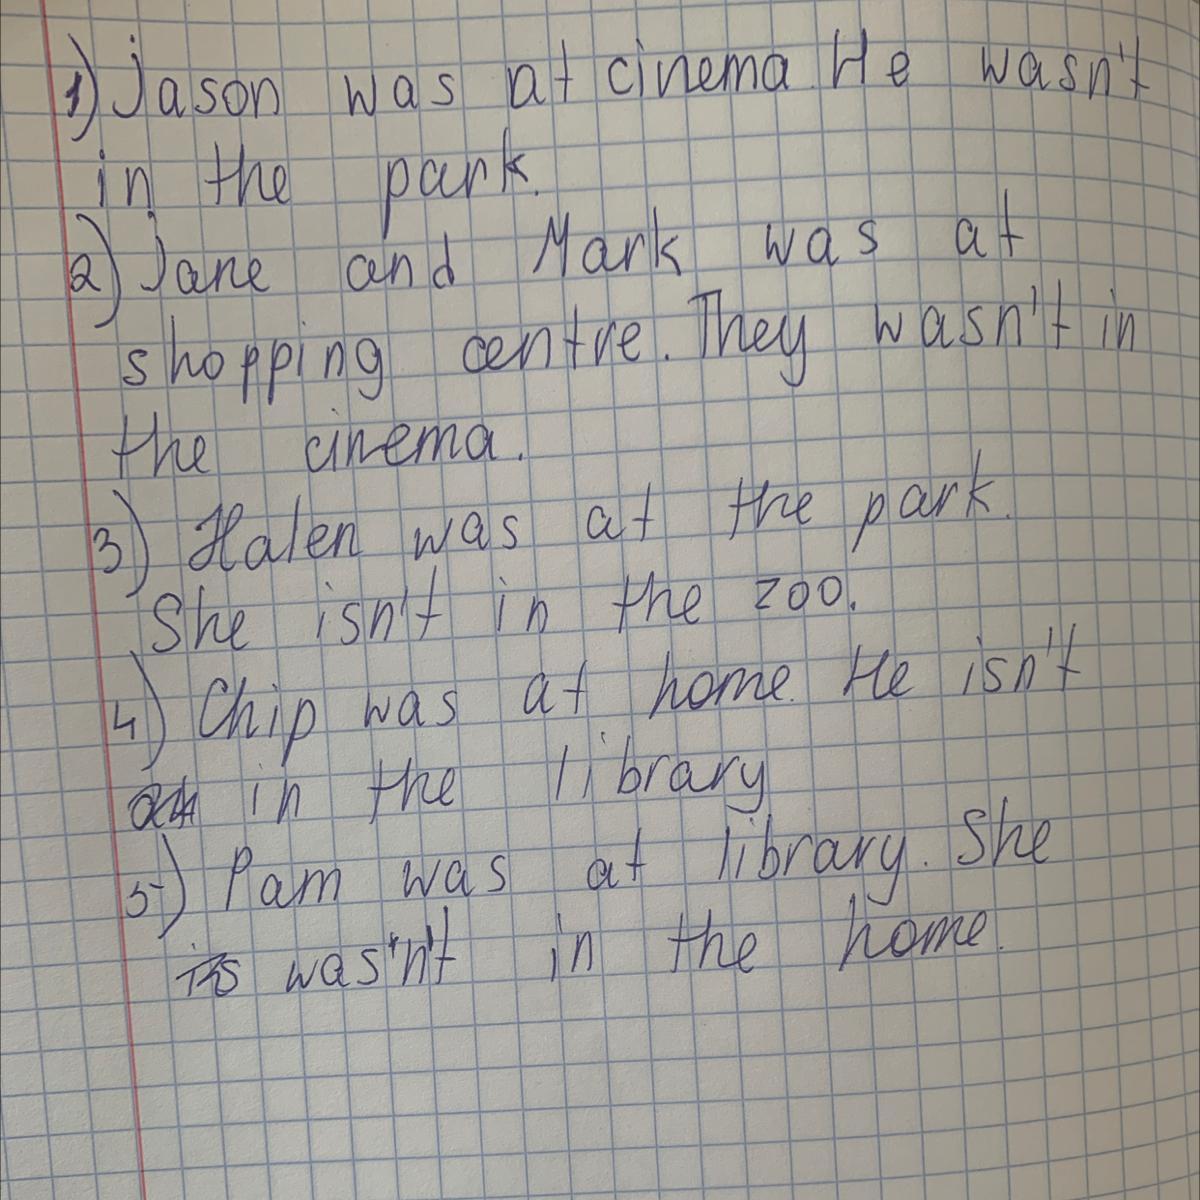 1) Jason was at cinema. He wasn't
in the park.
2) Jane and Mark was at
shopping centre. They wasn't in
the cinema.
3) Halen was at the park.
She isn't in the zoo.
4) Chip was at home. He isn't
in the library
5) Pam was at library. She
wasn't in the home.